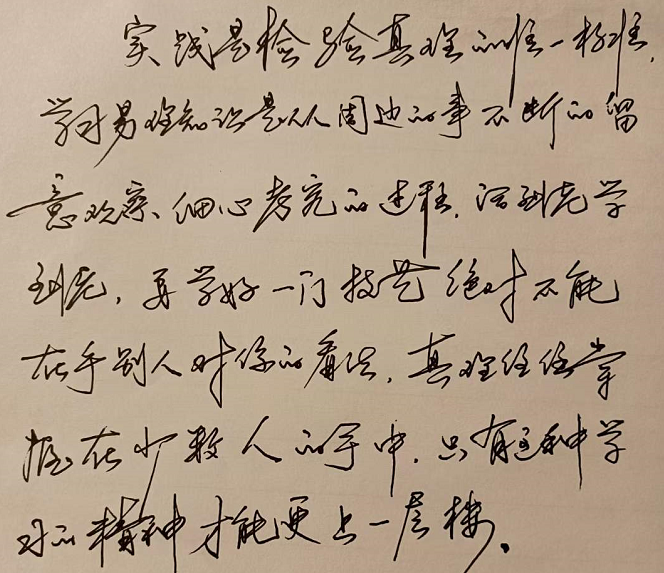 实践是检验真理的唯一标准,
学习易理知识是从周边的事不断的留
意观察、细心考究的过程,活到老学
到老,要学好一门技艺绝对不能
在乎别人对你的看法,真理往往掌
握在少数人的手中,只有这种学
习的精神才能更上一层楼。